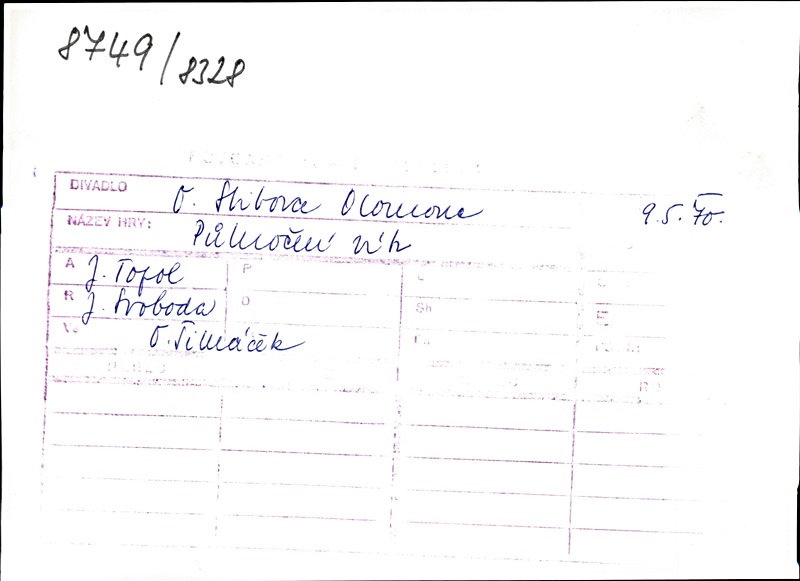 8749/8328
DIVADLO O. Stibora Olomouc 9.5.70.
NÁZEV HRY: Půlnoční vítr
A J. Topol P
R J. Svoboda O Sh E
O. Šimáček